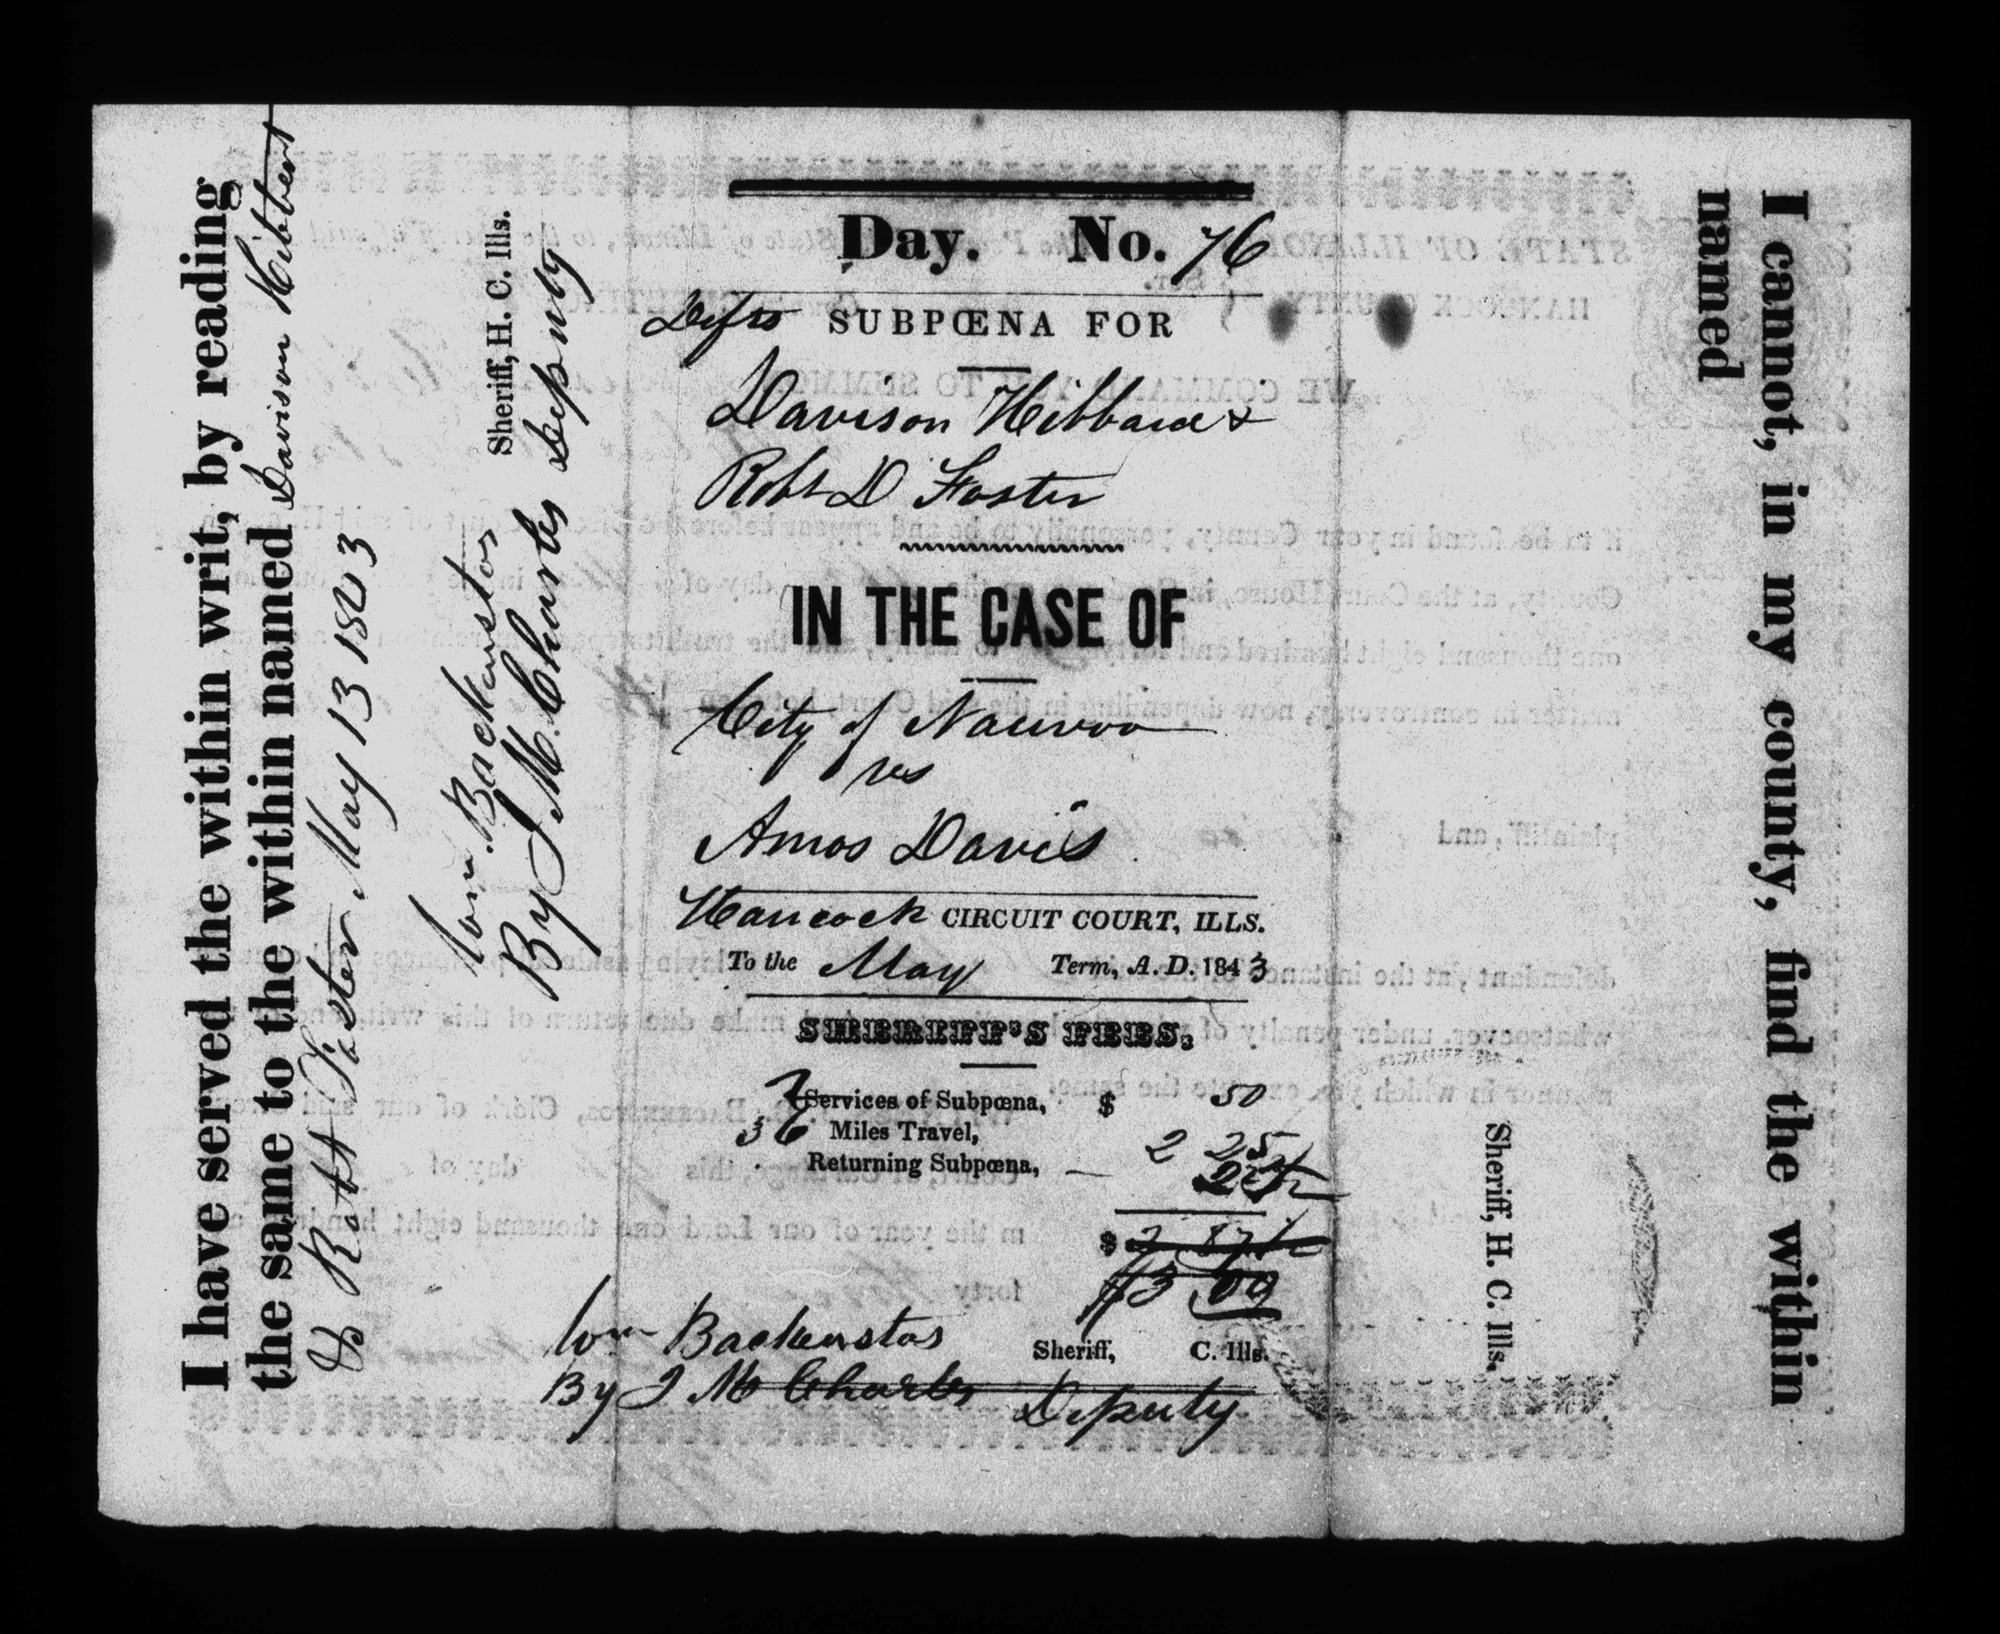 I have served the within writ, by reading
the same to the within named Davison Hibbert
& Robt Foster May 13 1843
Wm. Backenstos
Sheriff, H. C. Ills.
By J M. Charles Deputy
Day. No. 76
Defts SUBPŒNA FOR
Davison Hibbard &
Robt D Foster
IN THE CASE OF
City of Nauvoo
vs
Amos Davis
Hancock CIRCUIT COURT, ILLS.
To the May Term, A. D. 1843
SHERIFF'S FEES.
2 Services of Subpœna, $ 50
36 Miles Travel, 2 25
Returning Subpœna, 25
$ 2 87 1/2
$3 00
Wm Backenstos Sheriff, C. Ills.
By J M Charles Deputy
I cannot, in my county, find the within
named
Sheriff, H. C. Ills.